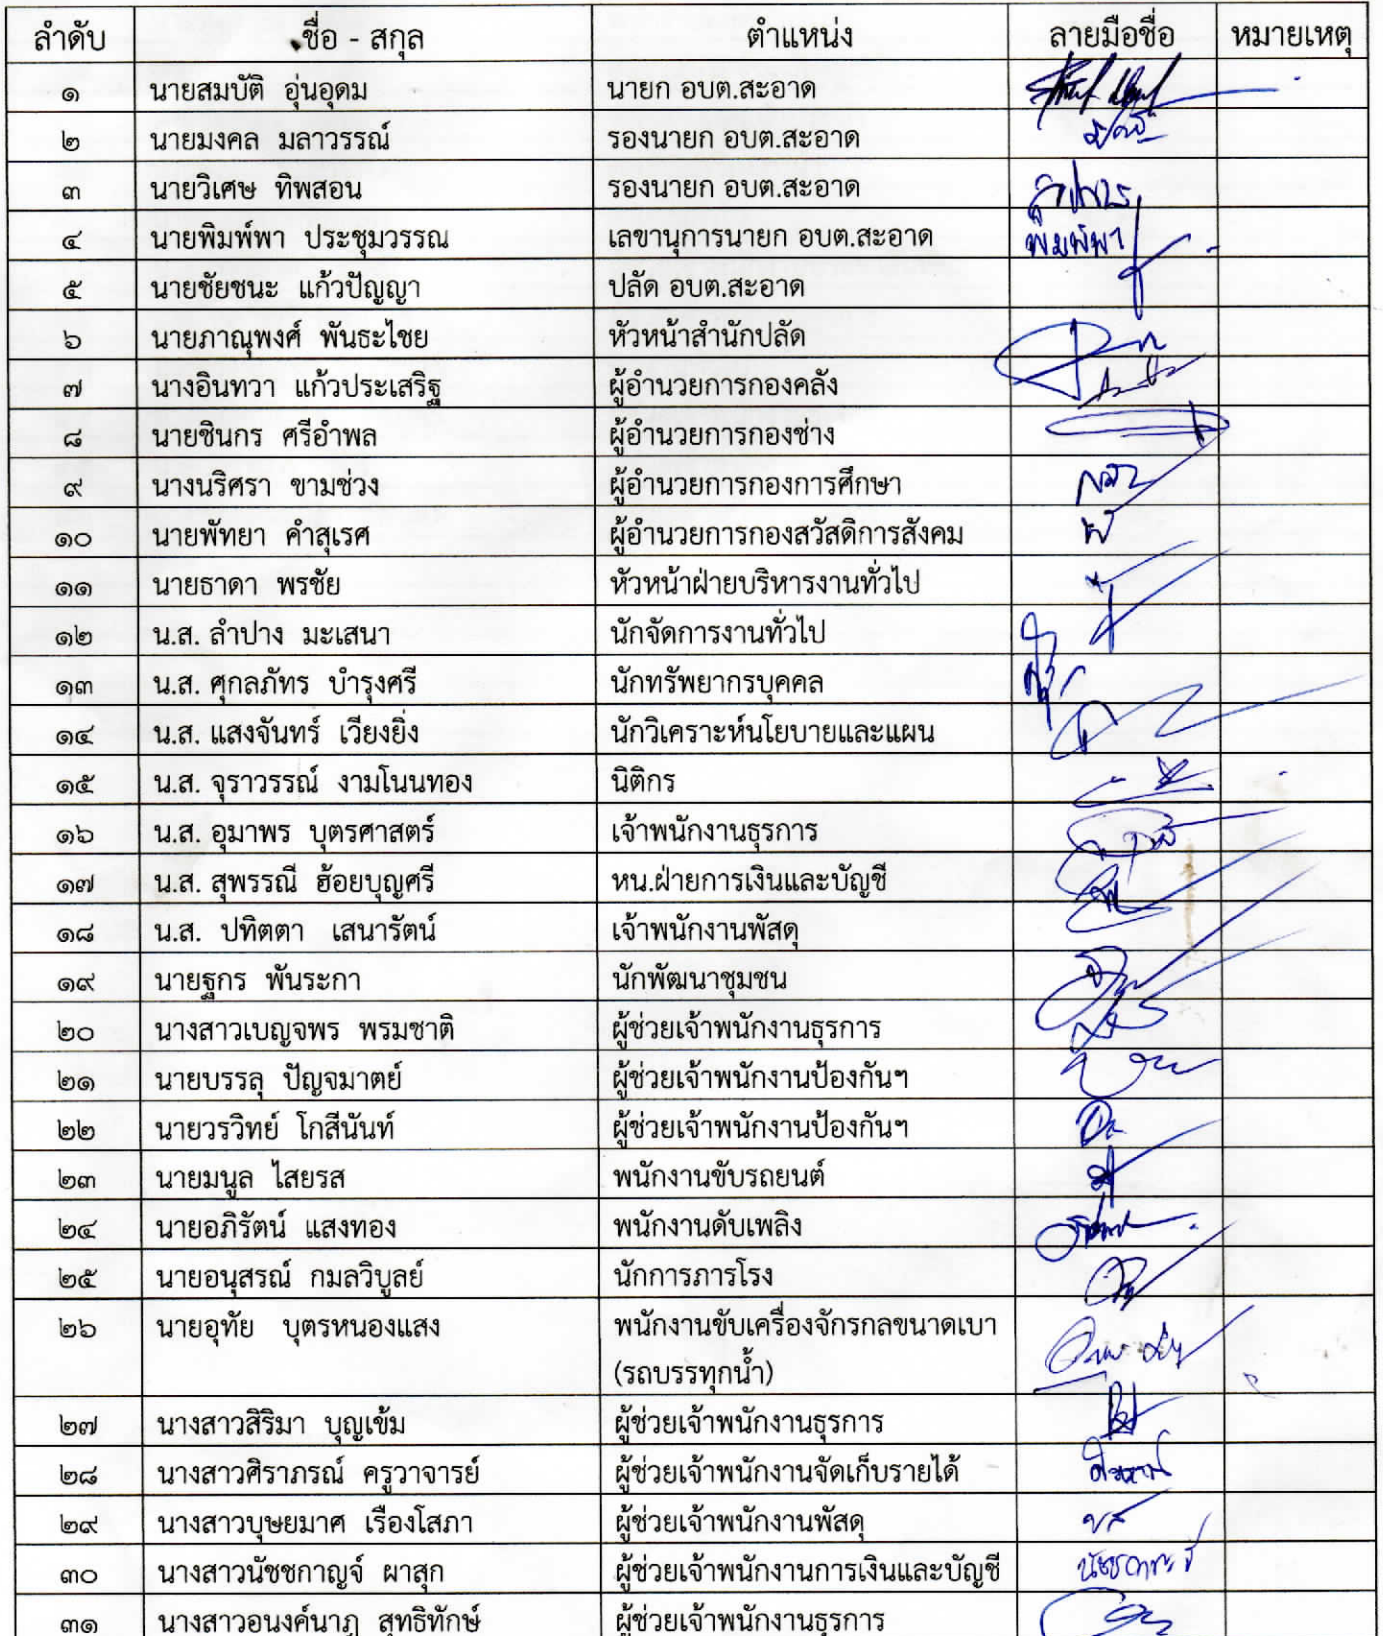 ลำดับ ชื่อ - สกุล ตำแหน่ง ลายมือชื่อ หมายเหตุ
๑ นายสมบัติ อุ่นอุดม นายก อบต.สะอาด
๒ นายมงคล มลาวรรณ์ รองนายก อบต.สะอาด
๓ นายวิเศษ ทิพสอน รองนายก อบต.สะอาด
๔ นายพิมพ์พา ประชุมวรรณ เลขานุการนายก อบต.สะอาด พิมพ์พา
๕ นายชัยชนะ แก้วปัญญา ปลัด อบต.สะอาด
๖ นายภาณุพงศ์ พันธะไชย หัวหน้าสำนักปลัด
๗ นางอินทวา แก้วประเสริฐ ผู้อำนวยการกองคลัง
๘ นายชินกร ศรีอำพล ผู้อำนวยการกองช่าง
๙ นางนริศรา ขามช่วง ผู้อำนวยการกองการศึกษา
๑๐ นายพัทยา คำสุเรศ ผู้อำนวยการกองสวัสดิการสังคม
๑๑ นายธาดา พรชัย หัวหน้าฝ่ายบริหารงานทั่วไป
๑๒ น.ส. ลำปาง มะเสนา นักจัดการงานทั่วไป
๑๓ น.ส. ศุกลภัทร บำรุงศรี นักทรัพยากรบุคคล
๑๔ น.ส. แสงจันทร์ เวียงยิ่ง นักวิเคราะห์นโยบายและแผน
๑๕ น.ส. จุราวรรณ์ งามโนนทอง นิติกร
๑๖ น.ส. อุมาพร บุตรศาสตร์ เจ้าพนักงานธุรการ
๑๗ น.ส. สุพรรณี ฮ้อยบุญศรี หน.ฝ่ายการเงินและบัญชี
๑๘ น.ส. ปทิตตา เสนารัตน์ เจ้าพนักงานพัสดุ
๑๙ นายฐกร พันระกา นักพัฒนาชุมชน
๒๐ นางสาวเบญจพร พรมชาติ ผู้ช่วยเจ้าพนักงานธุรการ
๒๑ นายบรรลุ ปัญจมาตย์ ผู้ช่วยเจ้าพนักงานป้องกันฯ
๒๒ นายวรวิทย์ โกสีนันท์ ผู้ช่วยเจ้าพนักงานป้องกันฯ
๒๓ นายมนูล ไสยรส พนักงานขับรถยนต์
๒๔ นายอภิรัตน์ แสงทอง พนักงานดับเพลิง
๒๕ นายอนุสรณ์ กมลวิบูลย์ นักการภารโรง
๒๖ นายอุทัย บุตรหนองแสง พนักงานขับเครื่องจักรกลขนาดเบา
(รถบรรทุกน้ำ)
๒๗ นางสาวสิริมา บุญเข้ม ผู้ช่วยเจ้าพนักงานธุรการ
๒๘ นางสาวศิราภรณ์ ครูวาจารย์ ผู้ช่วยเจ้าพนักงานจัดเก็บรายได้
๒๙ นางสาวบุษยมาศ เรืองโสภา ผู้ช่วยเจ้าพนักงานพัสดุ
๓๐ นางสาวนัชชกาญจ์ ผาสุก ผู้ช่วยเจ้าพนักงานการเงินและบัญชี
๓๑ นางสาวอนงค์นาฏ สุทธิทักษ์ ผู้ช่วยเจ้าพนักงานธุรการ